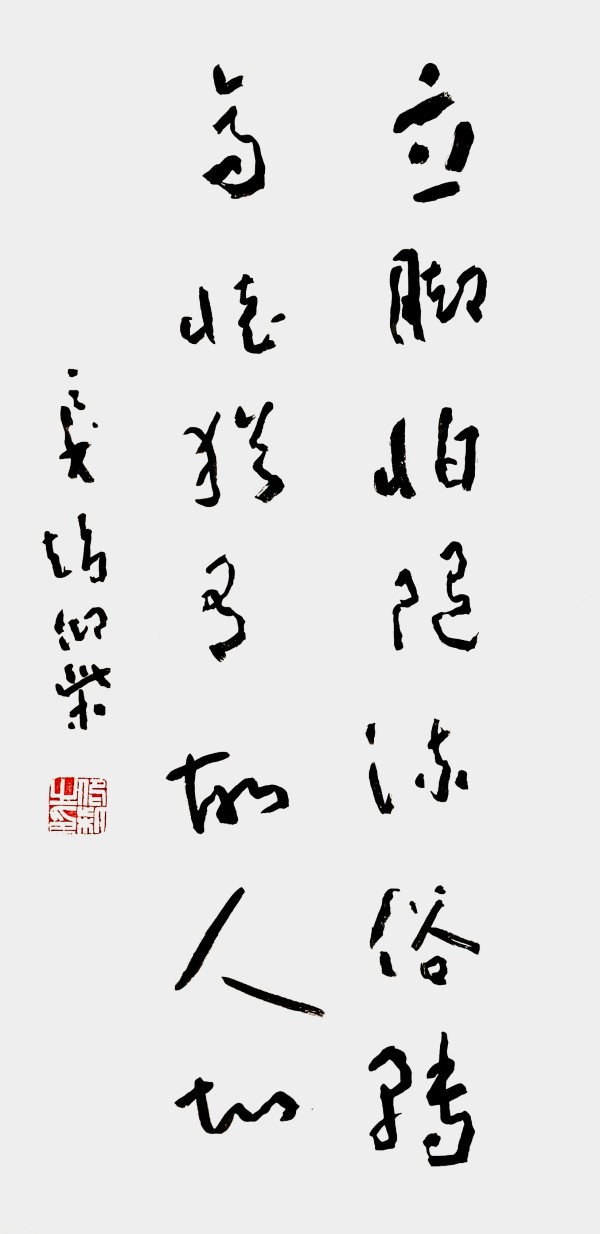 立脚怕随流俗转
高怀犹有故人知